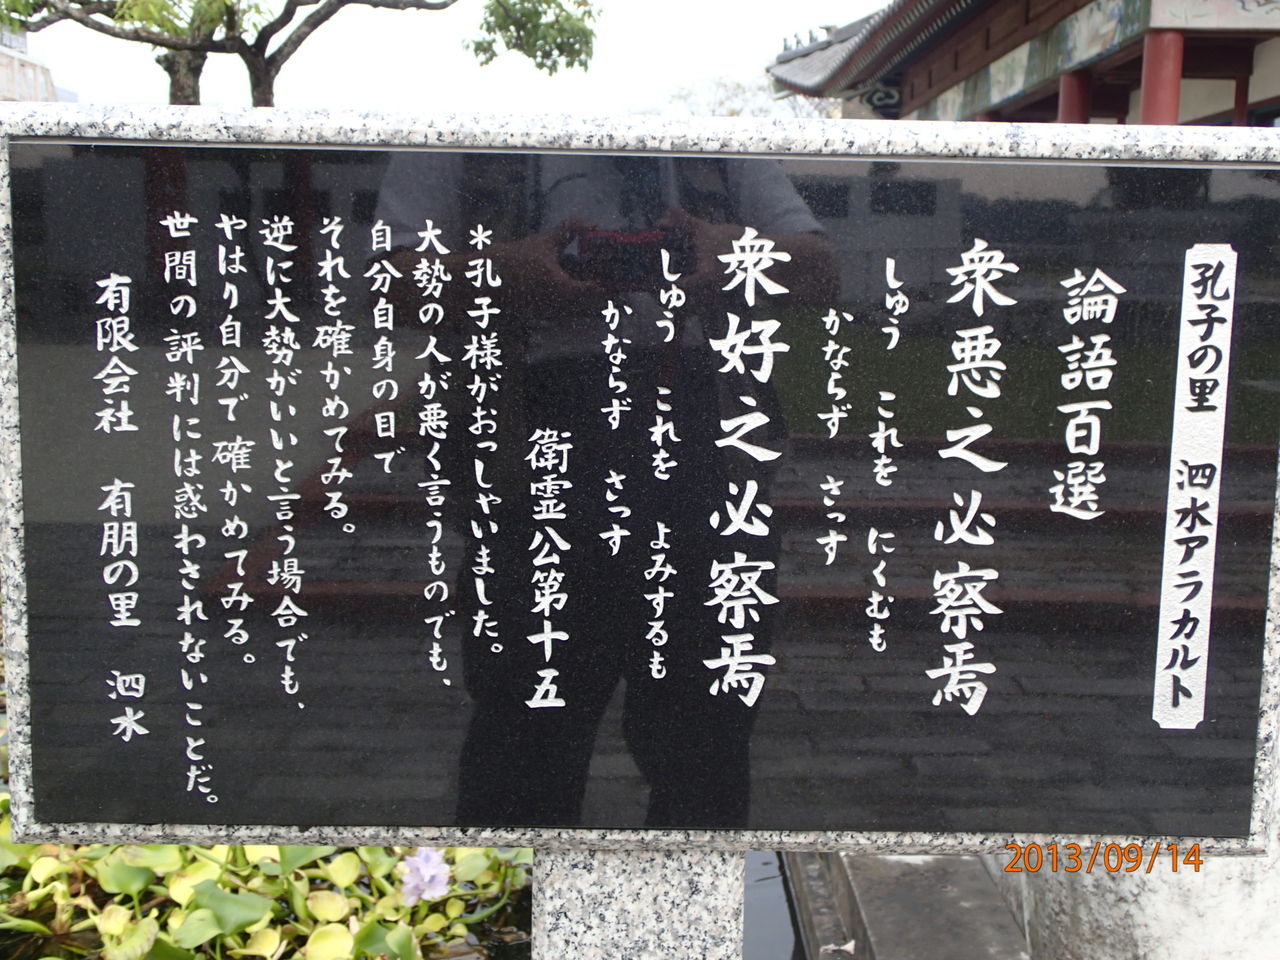 孔子の里　泗水アラカルト
論語百選
衆悪之必察焉
しゅう　これを　にくむも
かならず　さっす
衆好之必察焉
しゅう　これを　よみするも
かならず　さっす
衛霊公第十五
＊孔子様がおっしゃいました。
大勢の人が悪く言うものでも、
自分自身の目で
それを確かめてみる。
逆に大勢がいいと言う場合でも、
やはり自分で確かめてみる。
世間の評判には惑わされないことだ。
有限会社　有朋の里　泗水
2013/09/14